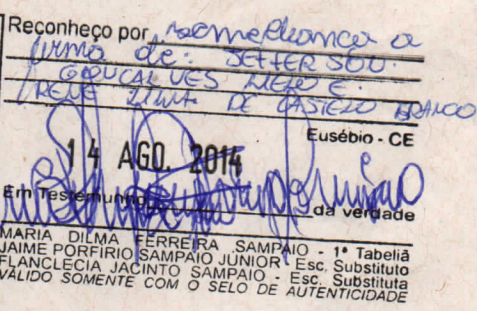 Reconheço por semelhança a
firma de: JEFFERSON
GONÇALVES MELO E
RENE LIMA DE CASTELO BRANCO
Eusébio - CE
14 AGO. 2014
Em Testemunho da verdade
MARIA DILMA FERREIRA SAMPAIO - 1ª Tabeliã
JAIME PORFIRIO SAMPAIO JÚNIOR - Esc. Substituto
FLANCLECIA JACINTO SAMPAIO - Esc. Substituta
VÁLIDO SOMENTE COM O SELO DE AUTENTICIDADE